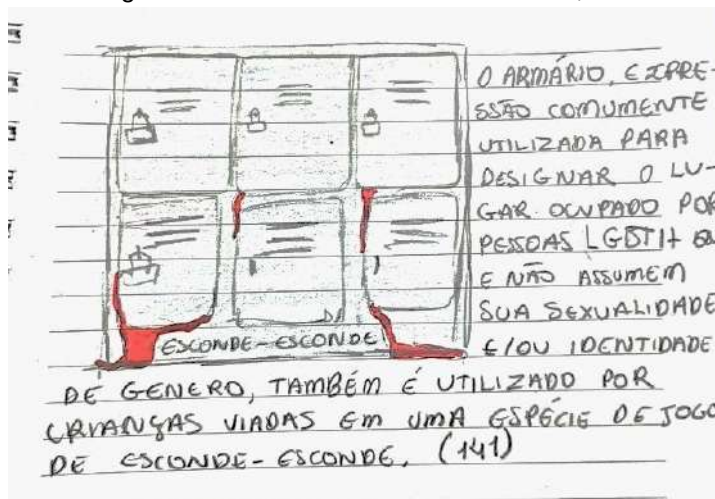 O ARMÁRIO, EXPRE-
SSÃO COMUMENTE
UTILIZADA PARA
DESIGNAR O LU-
GAR OCUPADO POR
PESSOAS LGBTI+
E NÃO ASSUMEM
SUA SEXUALIDADE
E/OU IDENTIDADE
ESCONDE-ESCONDE
DE GENERO, TAMBÉM É UTILIZADO POR
CRIANÇAS VIADAS EM UMA ESPÉCIE DE JOGO
DE ESCONDE-ESCONDE. (141)